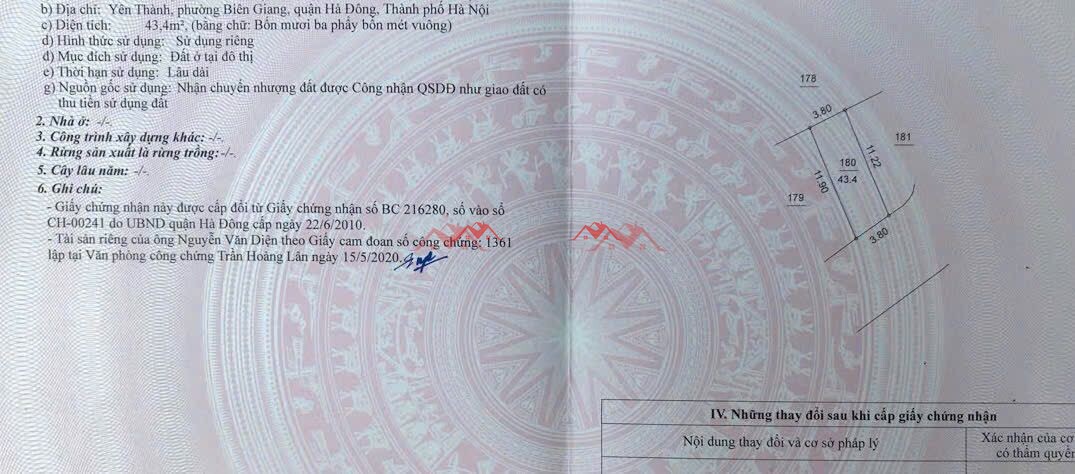 b) Địa chỉ: Yên Thành, phường Biên Giang, quận Hà Đông, Thành phố Hà Nội
c) Diện tích: 43,4m², (bằng chữ: Bốn mươi ba phẩy bốn mét vuông)
d) Hình thức sử dụng: Sử dụng riêng
đ) Mục đích sử dụng: Đất ở tại đô thị
e) Thời hạn sử dụng: Lâu dài
g) Nguồn gốc sử dụng: Nhận chuyển nhượng đất được Công nhận QSDĐ như giao đất có
thu tiền sử dụng đất
2. Nhà ở: -/-.
3. Công trình xây dựng khác: -/-.
4. Rừng sản xuất là rừng trồng: -/-.
5. Cây lâu năm: -/-.
6. Ghi chú:
- Giấy chứng nhận này được cấp đổi từ Giấy chứng nhận số BC 216280, số vào sổ
CH-00241 do UBND quận Hà Đông cấp ngày 22/6/2010.
- Tài sản riêng của ông Nguyễn Văn Diện theo Giấy cam đoan số công chứng: 1361
lập tại Văn phòng công chứng Trần Hoàng Lân ngày 15/5/2020.
178
3.80
181
11.22
180
43.4
11.90
179
3.80
IV. Những thay đổi sau khi cấp giấy chứng nhận
Nội dung thay đổi và cơ sở pháp lý
Xác nhận của cơ
có thẩm quyề